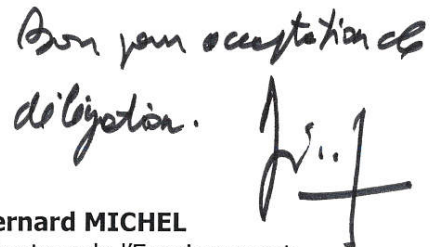 Bon pour acceptation de
délégation.
ernard MICHEL